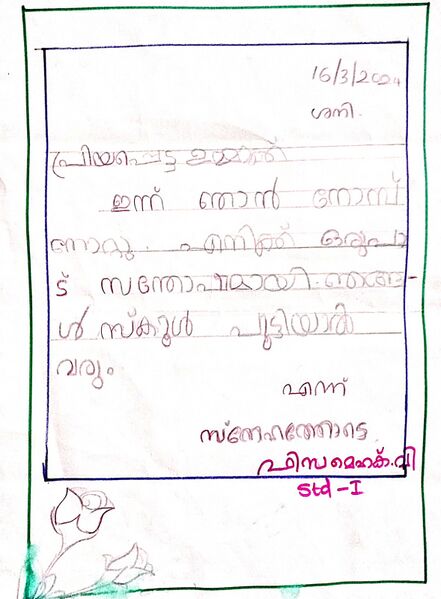 16/3/2024
ശനി.
പ്രിയപ്പെട്ട ഉമ്മാക്ക്
ഇന്ന് ഞാൻ നോമ്പ്
നോറ്റു. എനിക്ക് ഒരുപാ
ട് സന്തോഷമായി. ഞങ്ങ-
ൾ സ്കൂൾ പൂട്ടിയാൽ
വരും.
എന്ന്
സ്നേഹത്തോടെ
ഫിസ മെഹക്. വി
Std - I